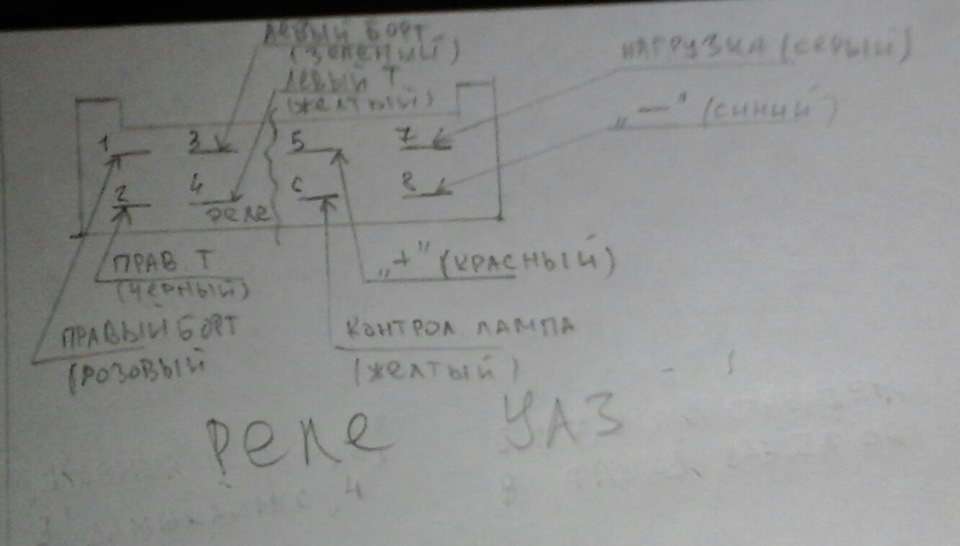 ЛЕВЫЙ БОРТ
(ЗЕЛЕНИЙ)
ЛЕВЫЙ Т
(ЖЕЛТЫЙ)
НАГРУЗКА (СЕРЫЙ)
„—" (СИНИЙ)
1 3 5 7
2 4 6 8
реле
ПРАВ. Т
(ЧЕРНЫЙ)
„+" (КРАСНЫЙ)
ПРАВЫЙ БОРТ
(РОЗОВЫЙ
КОНТРОЛ ЛАМПА
(ЖЕЛТЫЙ)
реле УАЗ